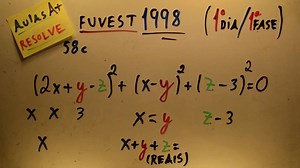 Aulas A+
RESOLVE
FUVEST 1998 (1º DIA/1ª FASE)
58c
(2x+y-z)²+(x-y)²+(z-3)²=0
x x 3 x=y z-3
x x+y+z=
(REAIS)